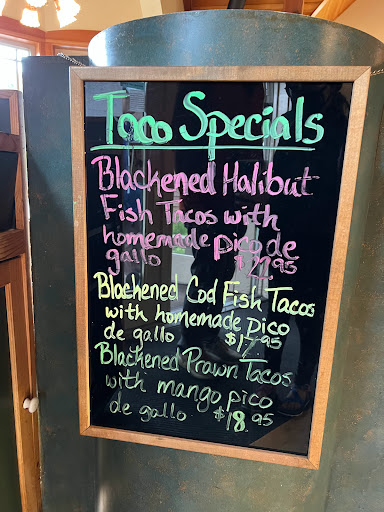 Taco Specials
Blackened Halibut
Fish Tacos with
homemade pico de
gallo $21.95
Blackened Cod Fish Tacos
with homemade pico
de gallo $17.95
Blackened Prawn Tacos
with mango pico
de gallo $18.95